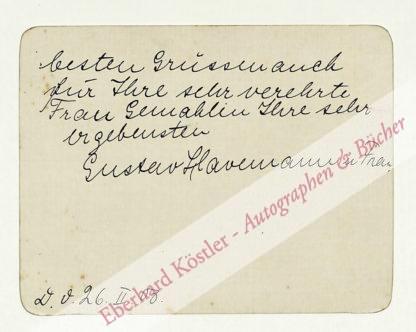 besten Grüssen auch
für Ihre sehr verehrte
Frau Gemahlin Ihre sehr
ergebensten
Gustav Havemann u Frau
Eberhard Köstler - Autographen & Bücher
D. d. 26. II